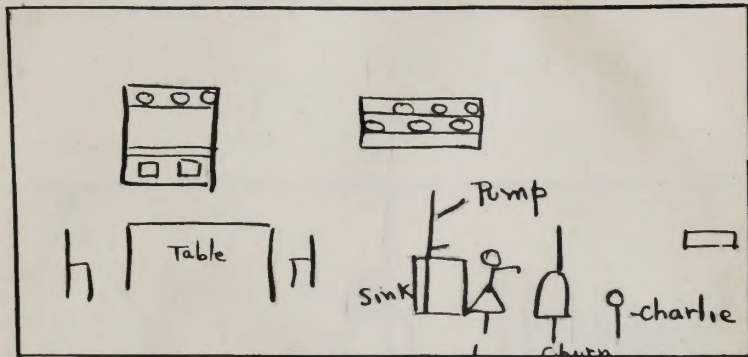 Pump
Table
Sink
-Charlie
churn